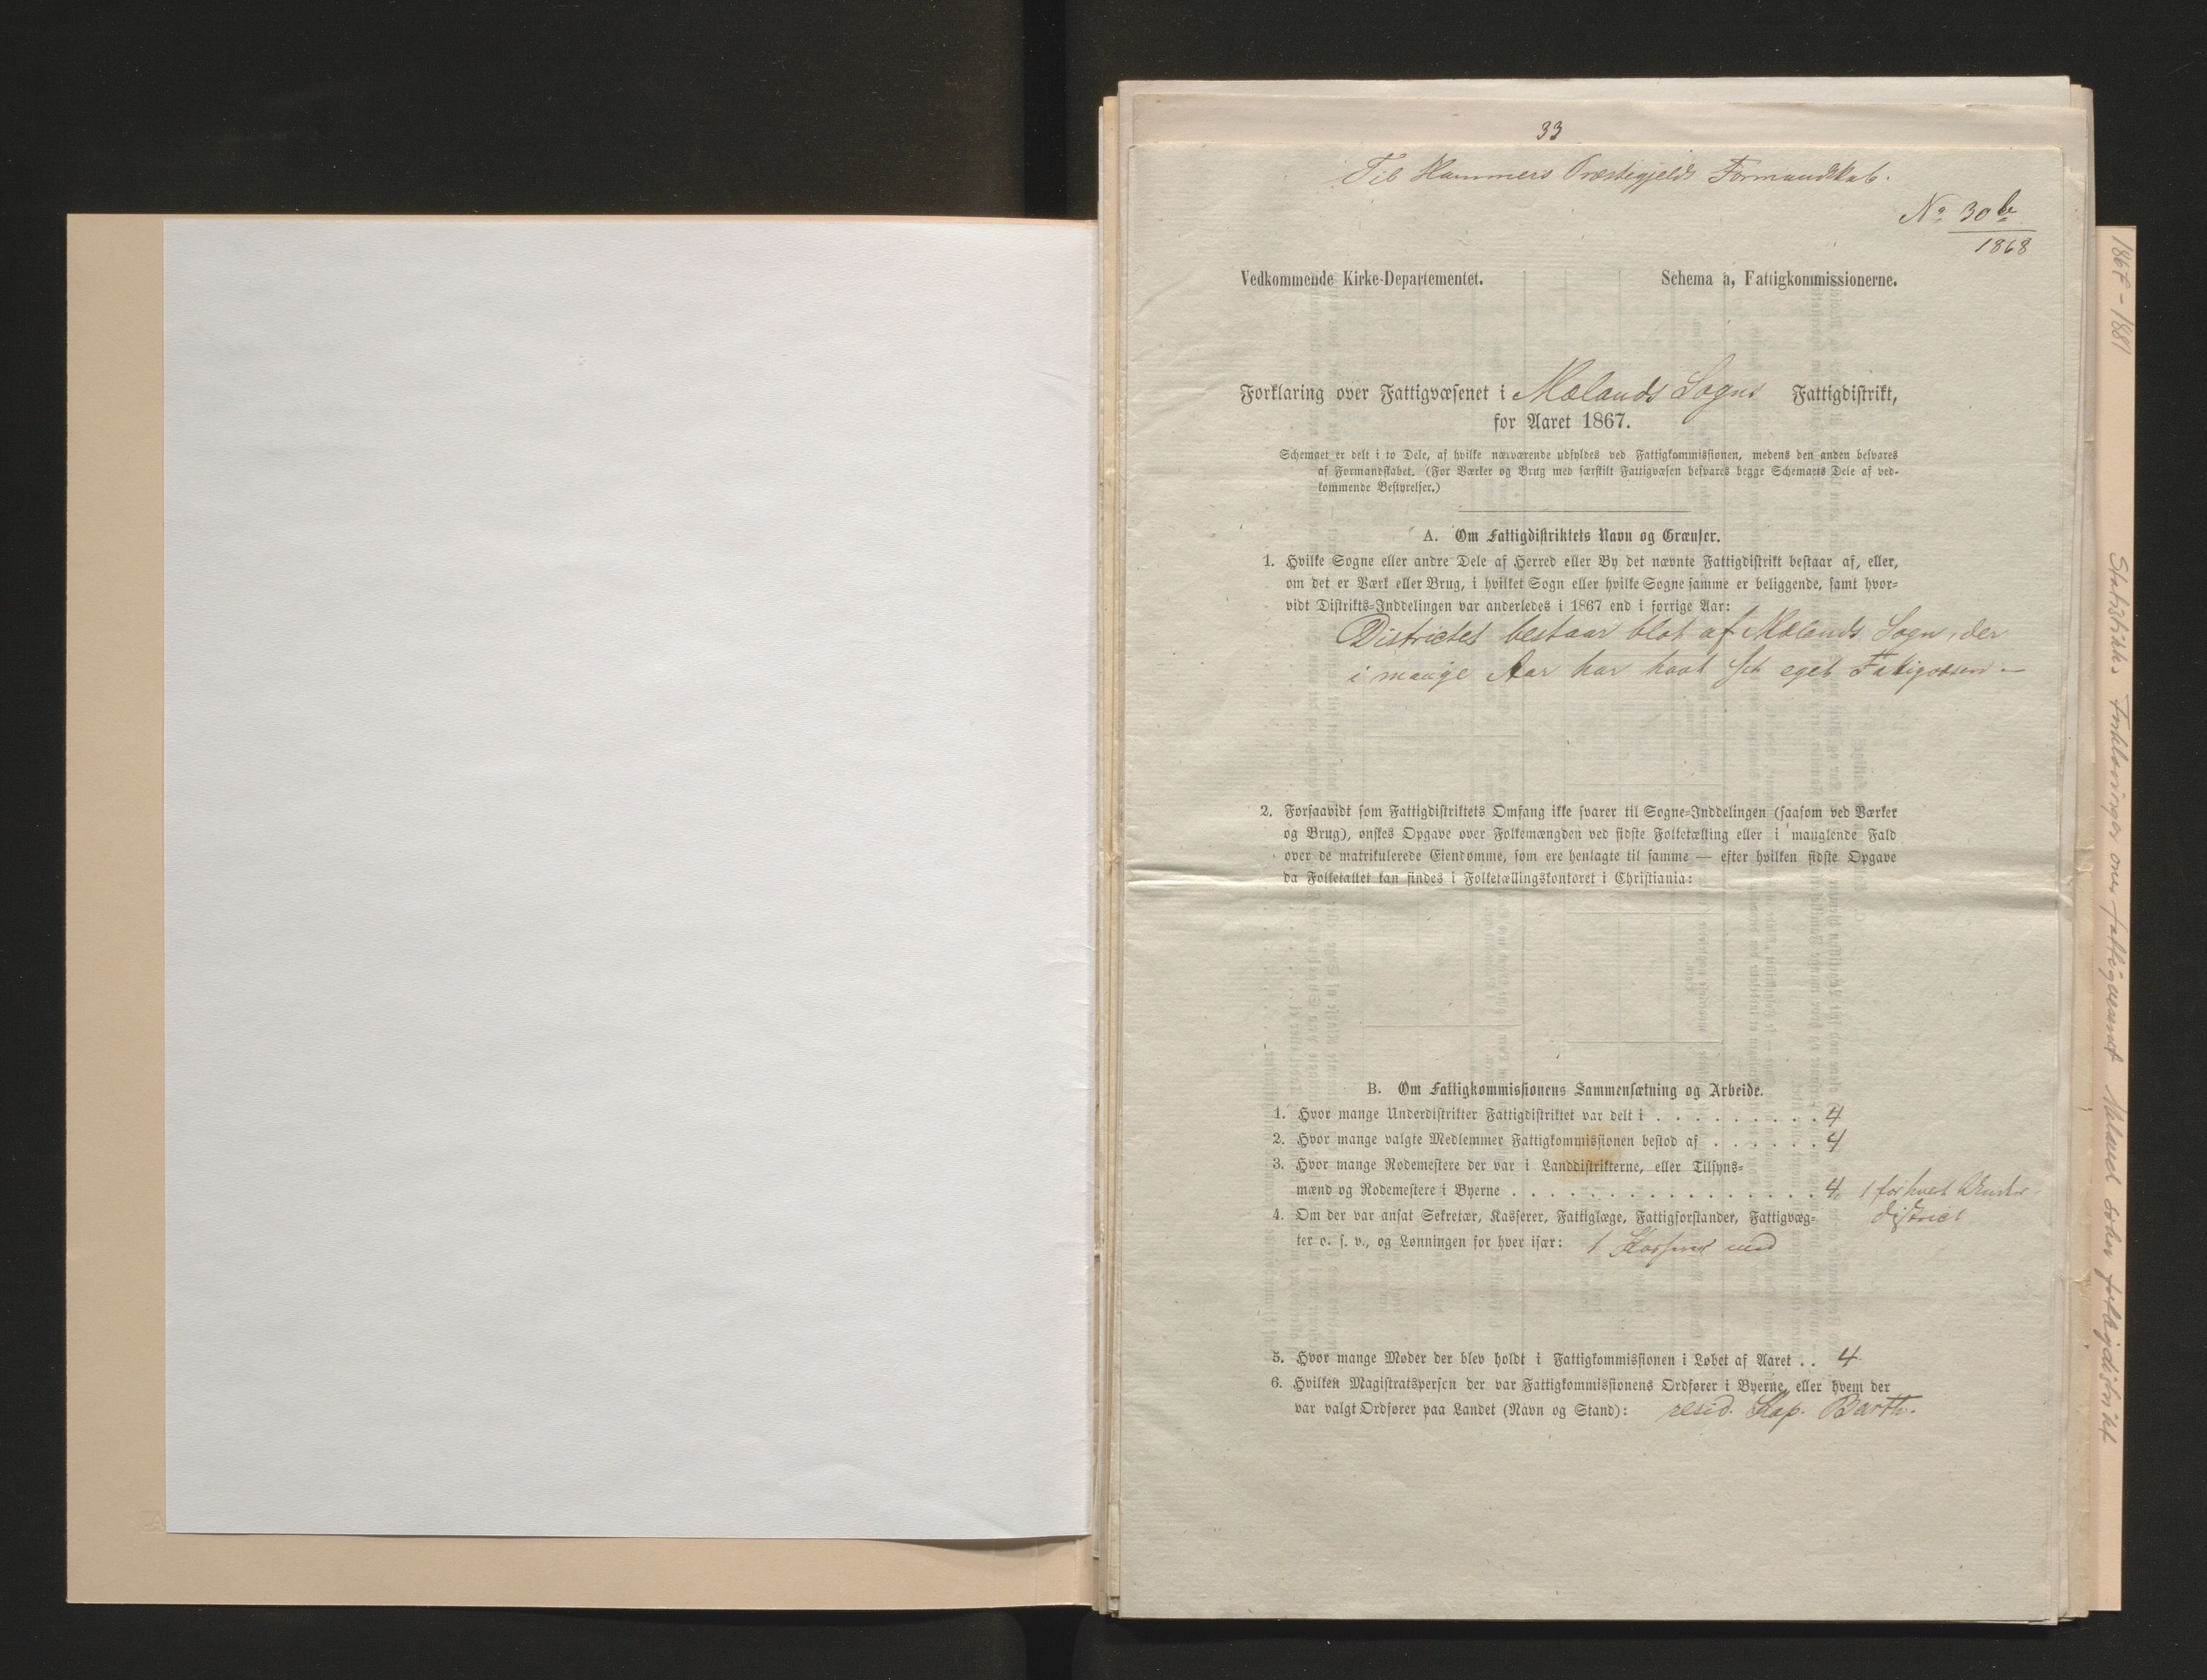 33
Til Hammers Præstegjelds Formandskab.
No 30 b
1868
Vedkommende Kirke-Departementet.
Schema a, Fattigkommissionerne.
Forklaring over Fattigvæsenet i Mælands Sogns Fattigdistrikt,
for Aaret 1867.
Schemaet er delt i to Dele, af hvilke nærværende udfyldes ved Fattigkommissionen, medens den anden besvares
af Formandskabet. (For Værker og Brug med særskilt Fattigvæsen besvares begge Schemaets Dele af ved-
kommende Bestyrelser.)
A. Om Fattigdistriktets Navn og Grænser.
1. Hvilke Sogne eller andre Dele af Herred eller By det nævnte Fattigdistrikt bestaar af, eller,
om det er Værk eller Brug, i hvilket Sogn eller hvilke Sogne samme er beliggende, samt hvor-
vidt Distrikts-Inddelingen var anderledes i 1867 end i forrige Aar:
Districtet bestaar blot af Mælands Sogn, der
i mange Aar har havt sit eget Fattigvæsen.—
2. Forsaavidt som Fattigdistriktets Omfang ikke svarer til Sogne-Inddelingen (saasom ved Værker
og Brug), ønskes Opgave over Folkemængden ved sidste Folketælling eller i manglende Fald
over de matrikulerede Eiendomme, som ere henlagte til samme — efter hvilken sidste Opgave
da Folketallet kan findes i Folketællingskontoret i Christiania:
B. Om Fattigkommissionens Sammensætning og Arbeide.
1. Hvor mange Underdistrikter Fattigdistriktet var delt i . . . . . . . . . 4
2. Hvor mange valgte Medlemmer Fattigkommissionen bestod af . . . . . . 4
3. Hvor mange Rodemestere der var i Landdistrikterne, eller Tilsyns-
mænd og Rodemestere i Byerne . . . . . . . . . . . . . . . . 4. 1 for hvert Under-
district
4. Om der var ansat Sekretær, Kasserer, Fattiglæge, Fattigforstander, Fattigvæg-
ter o. s. v., og Lønningen for hver især: 1 Kasserer med
5. Hvor mange Møder der blev holdt i Fattigkommissionen i Løbet af Aaret . . 4
6. Hvilken Magistratsperson der var Fattigkommissionens Ordfører i Byerne, eller hvem der
var valgt Ordfører paa Landet (Navn og Stand): resid. Kap. Barth.
1867 - 1881 Statistiske Forklaringer over fattigvæsenet Mæland sokn fattigdistrikt